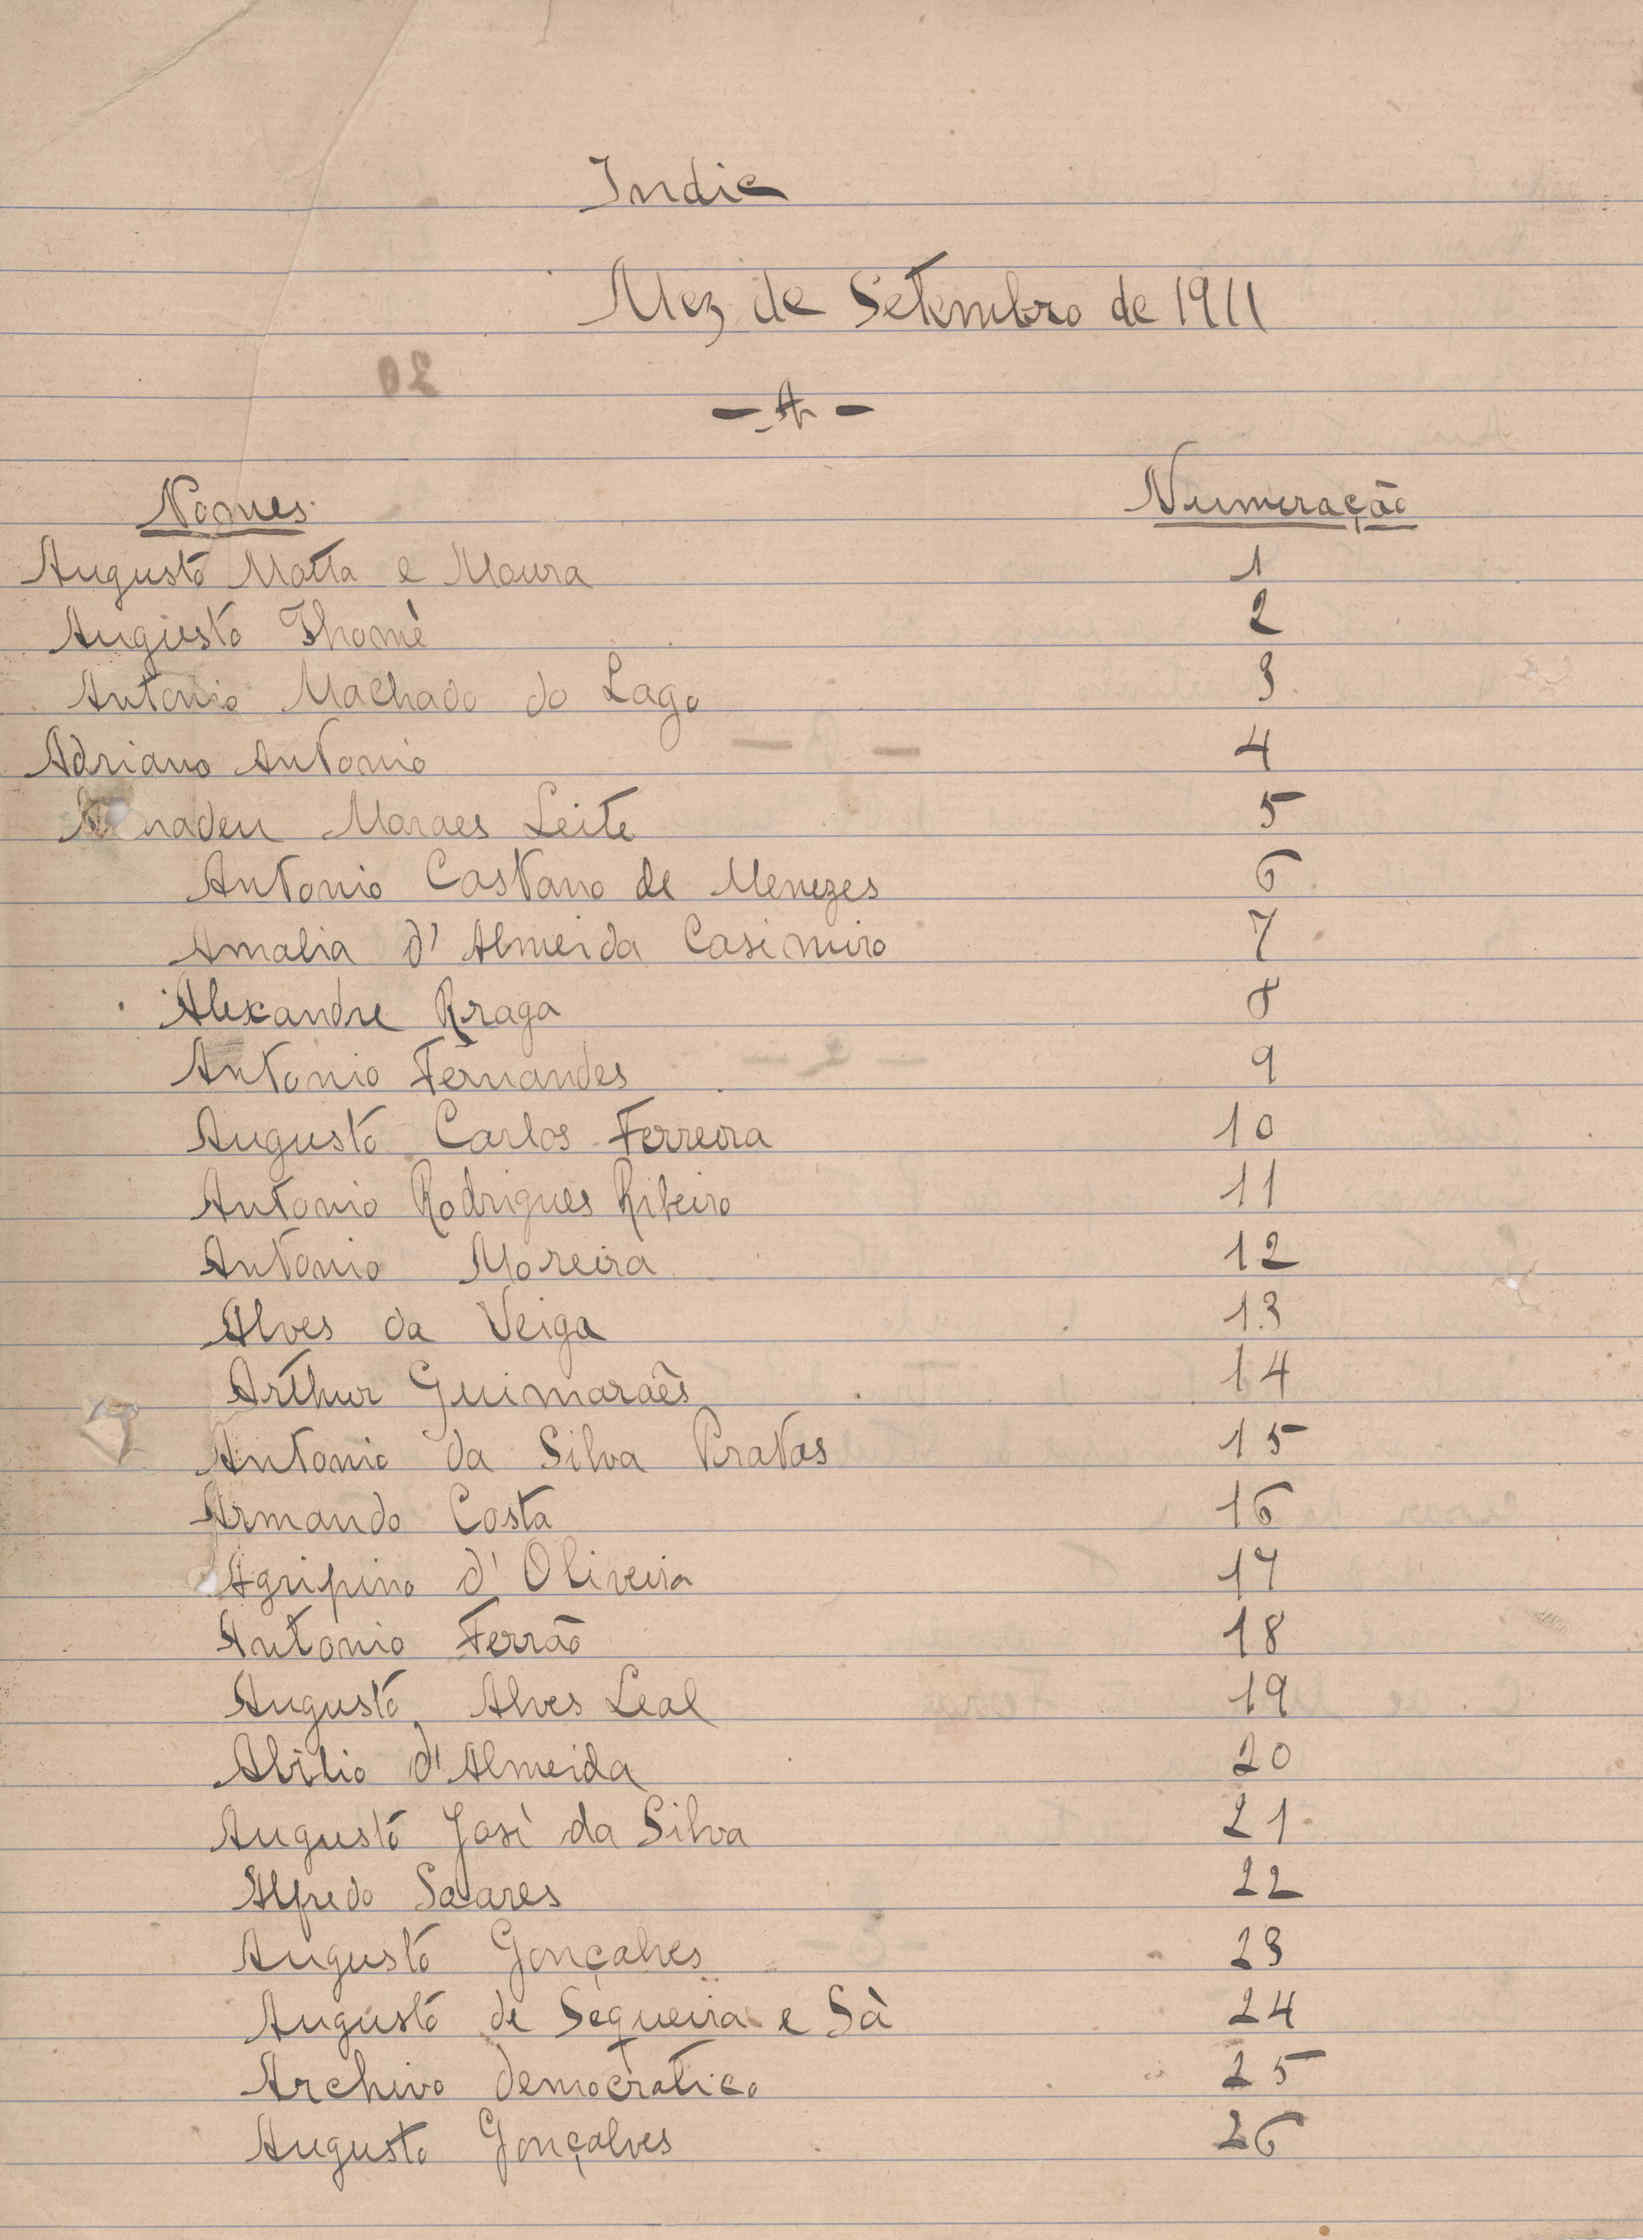 Indic
Mez de Setembro de 1911
- A -
Nomes Numeração
Augusto Motta e Moura 1
Augusto Thomè 2
Antonio Machado do Lago 3
Adriano Antonio 4
Amadeu Moraes Leite 5
Antonio Castano de Menezes 6
Amalia d'Almeida Casimiro 7
Alexandre Braga 8
Antonio Fernandes 9
Augusto Carlos Ferreira 10
Antonio Rodrigues Ribeiro 11
Antonio Moreira 12
Alves da Veiga 13
Arthur Guimaraẽs 14
Antonio da Silva Pratas 15
Armando Costa 16
Agripino d'Oliveira 17
Antonio Ferrão 18
Augusto Alves Leal 19
Abilio d'Almeida 20
Augusto Josè da Silva 21
Alfredo Soares 22
Augusto Gonçalves 23
Augusto de Sequeira e Sà 24
Archivo democratico 25
Augusto Gonçalves 26